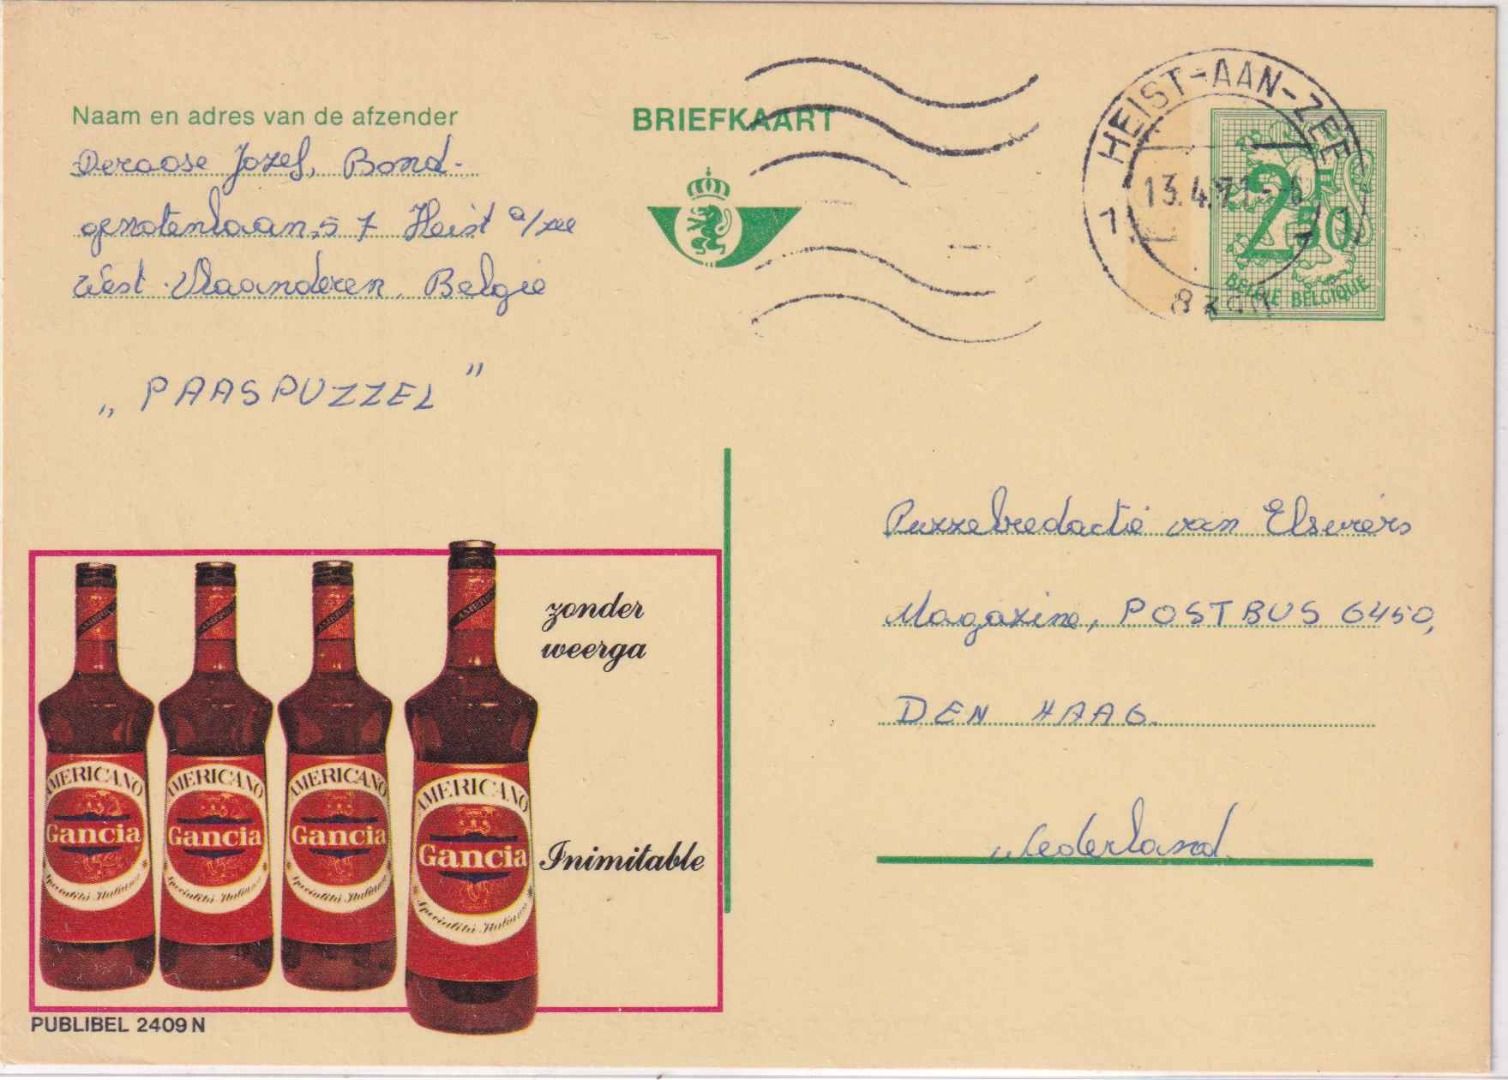 Naam en adres van de afzender
BRIEFKAART
Deroose Jozef, Bond-
genotenlaan, 57 Heist a/zee
West-Vlaanderen, België
„PAASPUZZEL"
HEIST-AAN-ZEE
13.4.
1 1
2F50
BELGIE BELGIQUE
Puzzelredactie van Elseviers
Magazine, POSTBUS 6450,
DEN HAAG.
Nederland
zonder
weerga
Inimitable
AMERICANO
Gancia
Specialità Italiana
AMERICANO
Gancia
Specialità Italiana
AMERICANO
Gancia
Specialità Italiana
AMERICANO
Gancia
Specialità Italiana
PUBLIBEL 2409 N